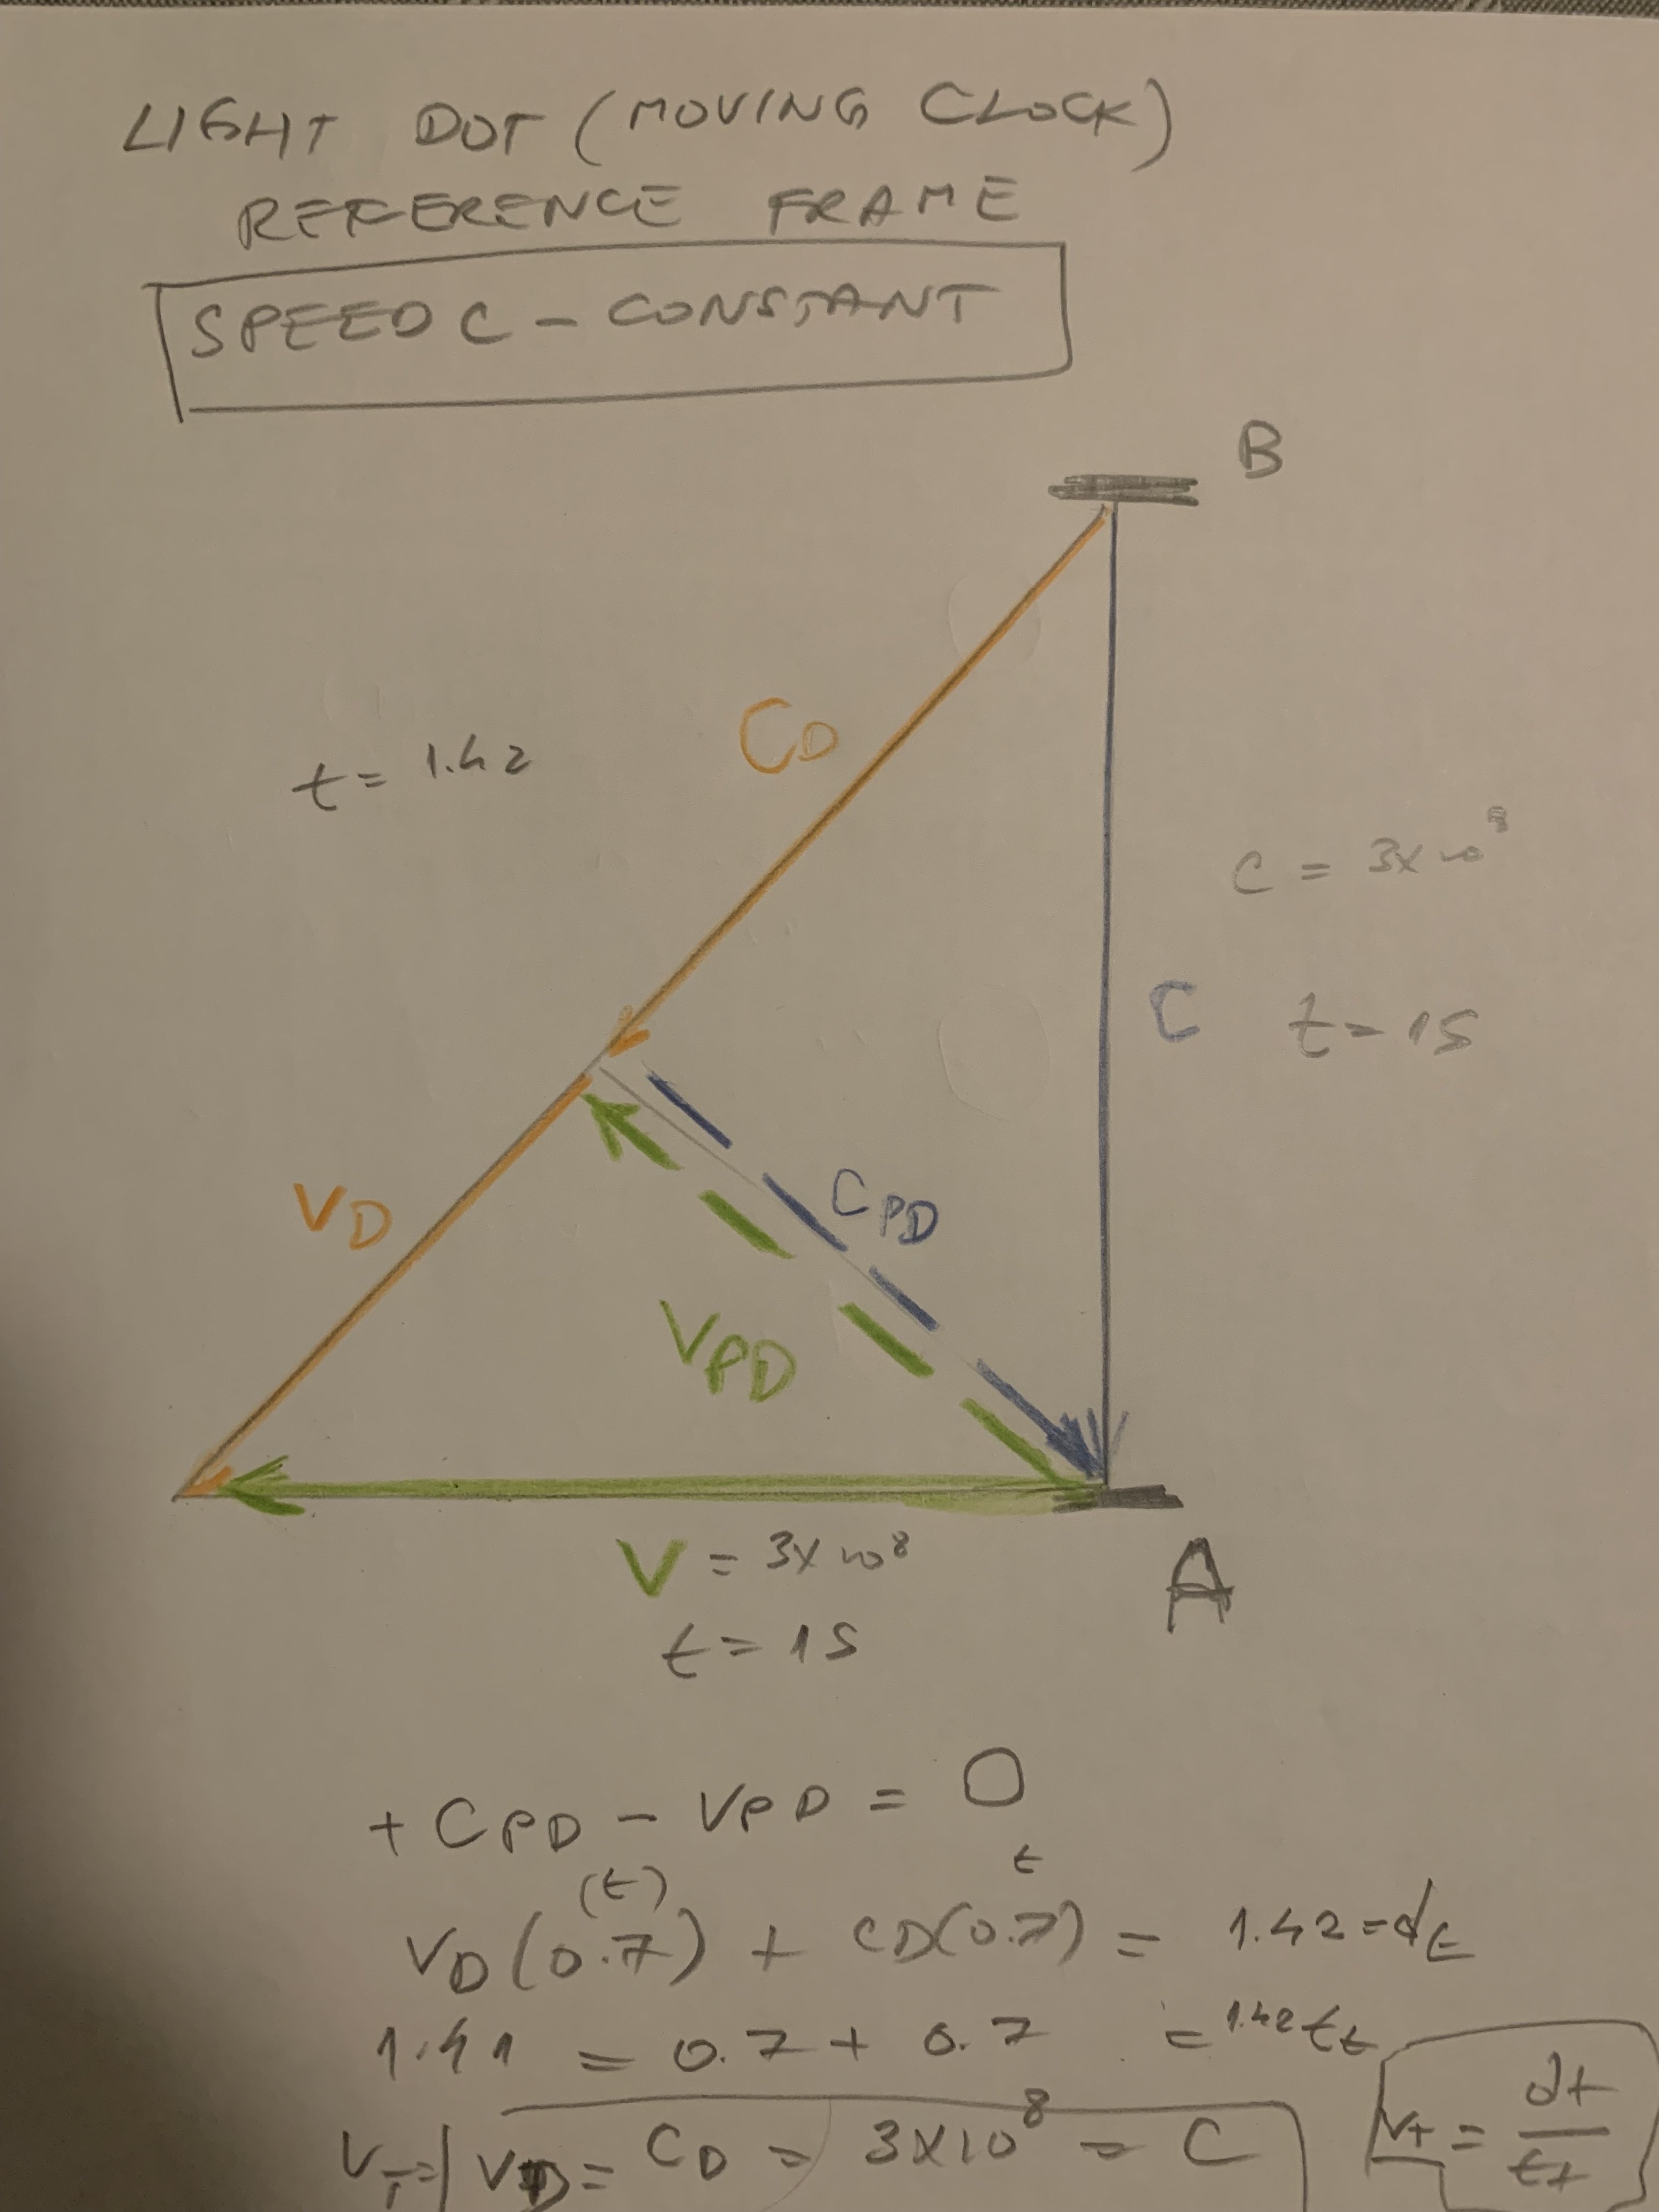 LIGHT DOT (MOVING CLOCK)
REFERENCE FRAME
SPEED C - CONSTANT
B
CD
t = 1.42
C = 3x10⁸
C
t = 1S
CPD
VD
VPD
V = 3x10⁸
t = 1S
A
+ CPD - VPD = 0
(t) t
VD (0.7) + CD(0.7) = 1.42 = dt
1.41 = 0.7 + 0.7 = 1.42 tt
VT = VD = CD = 3x10⁸ = C
VT = dt
tt